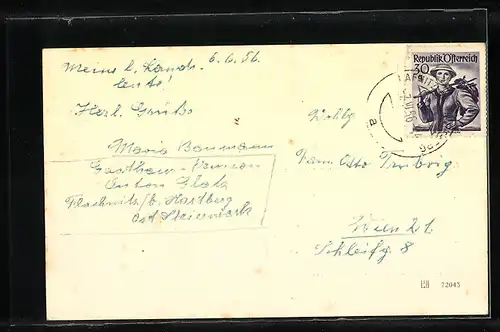 6.6.56
Meine l. Lands-
leute!
Herl. Grüße
Maria Baumann
Gasthaus-Pension
Anton Glatz
b/ Hartberg
Ost Steiermark
Republik Österreich
30
Wohlg
Fam. Otto
Wien 21.
Schleifg 8
72045